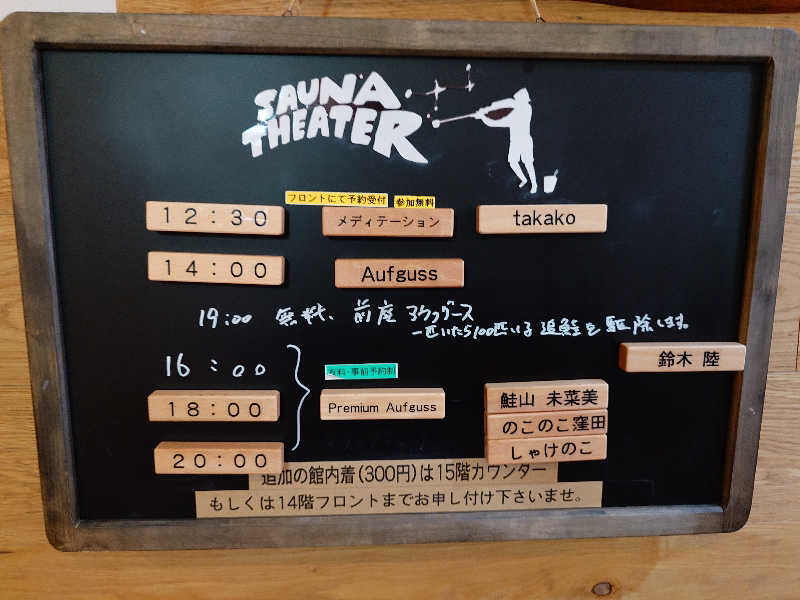 SAUNA
THEATER
フロントにて予約受付 参加無料
12:30 メディテーション takako
14:00 Aufguss
19:00 無料、前座アウフグース
一匹いたら100匹いる追鮭を駆除します。
鈴木 陸
16:00
有料・事前予約制
18:00 Premium Aufguss 鮭山 未菜美
のこのこ窪田
20:00 しゃけのこ
追加の館内着(300円)は15階カウンター
もしくは14階フロントまでお申し付け下さいませ。